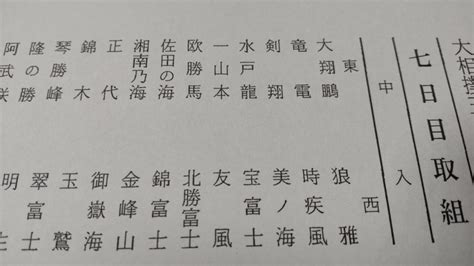 大相撲
七日目取組
中入
東 西
大翔鵬 狼雅
竜電 時疾風
剣翔 美ノ海
水戸龍 宝富士
一山本 友風
欧勝馬 北勝富士
佐田の海 錦富士
湘南乃海 金峰山
正代 御嶽海
錦木 玉鷲
琴勝峰 翠富士
隆の勝 明生
阿武咲